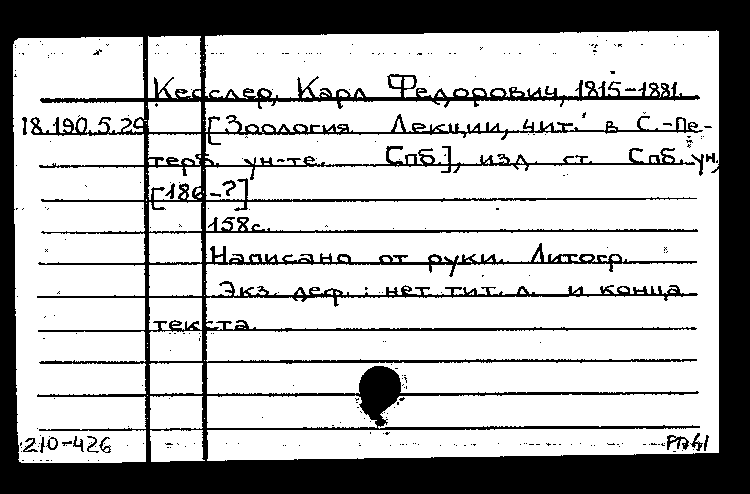 Кесслер, Карл Федорович, 1815-1881.
18.190.5.29 [Зоология. Лекции, чит. в С.-Пе-
терб. ун-те. Спб.], изд. ст. Спб. ун,
[186-?]
158с.
Написано от руки. Литогр.
Экз. деф.: нет тит. л. и конца
текста.
210-426